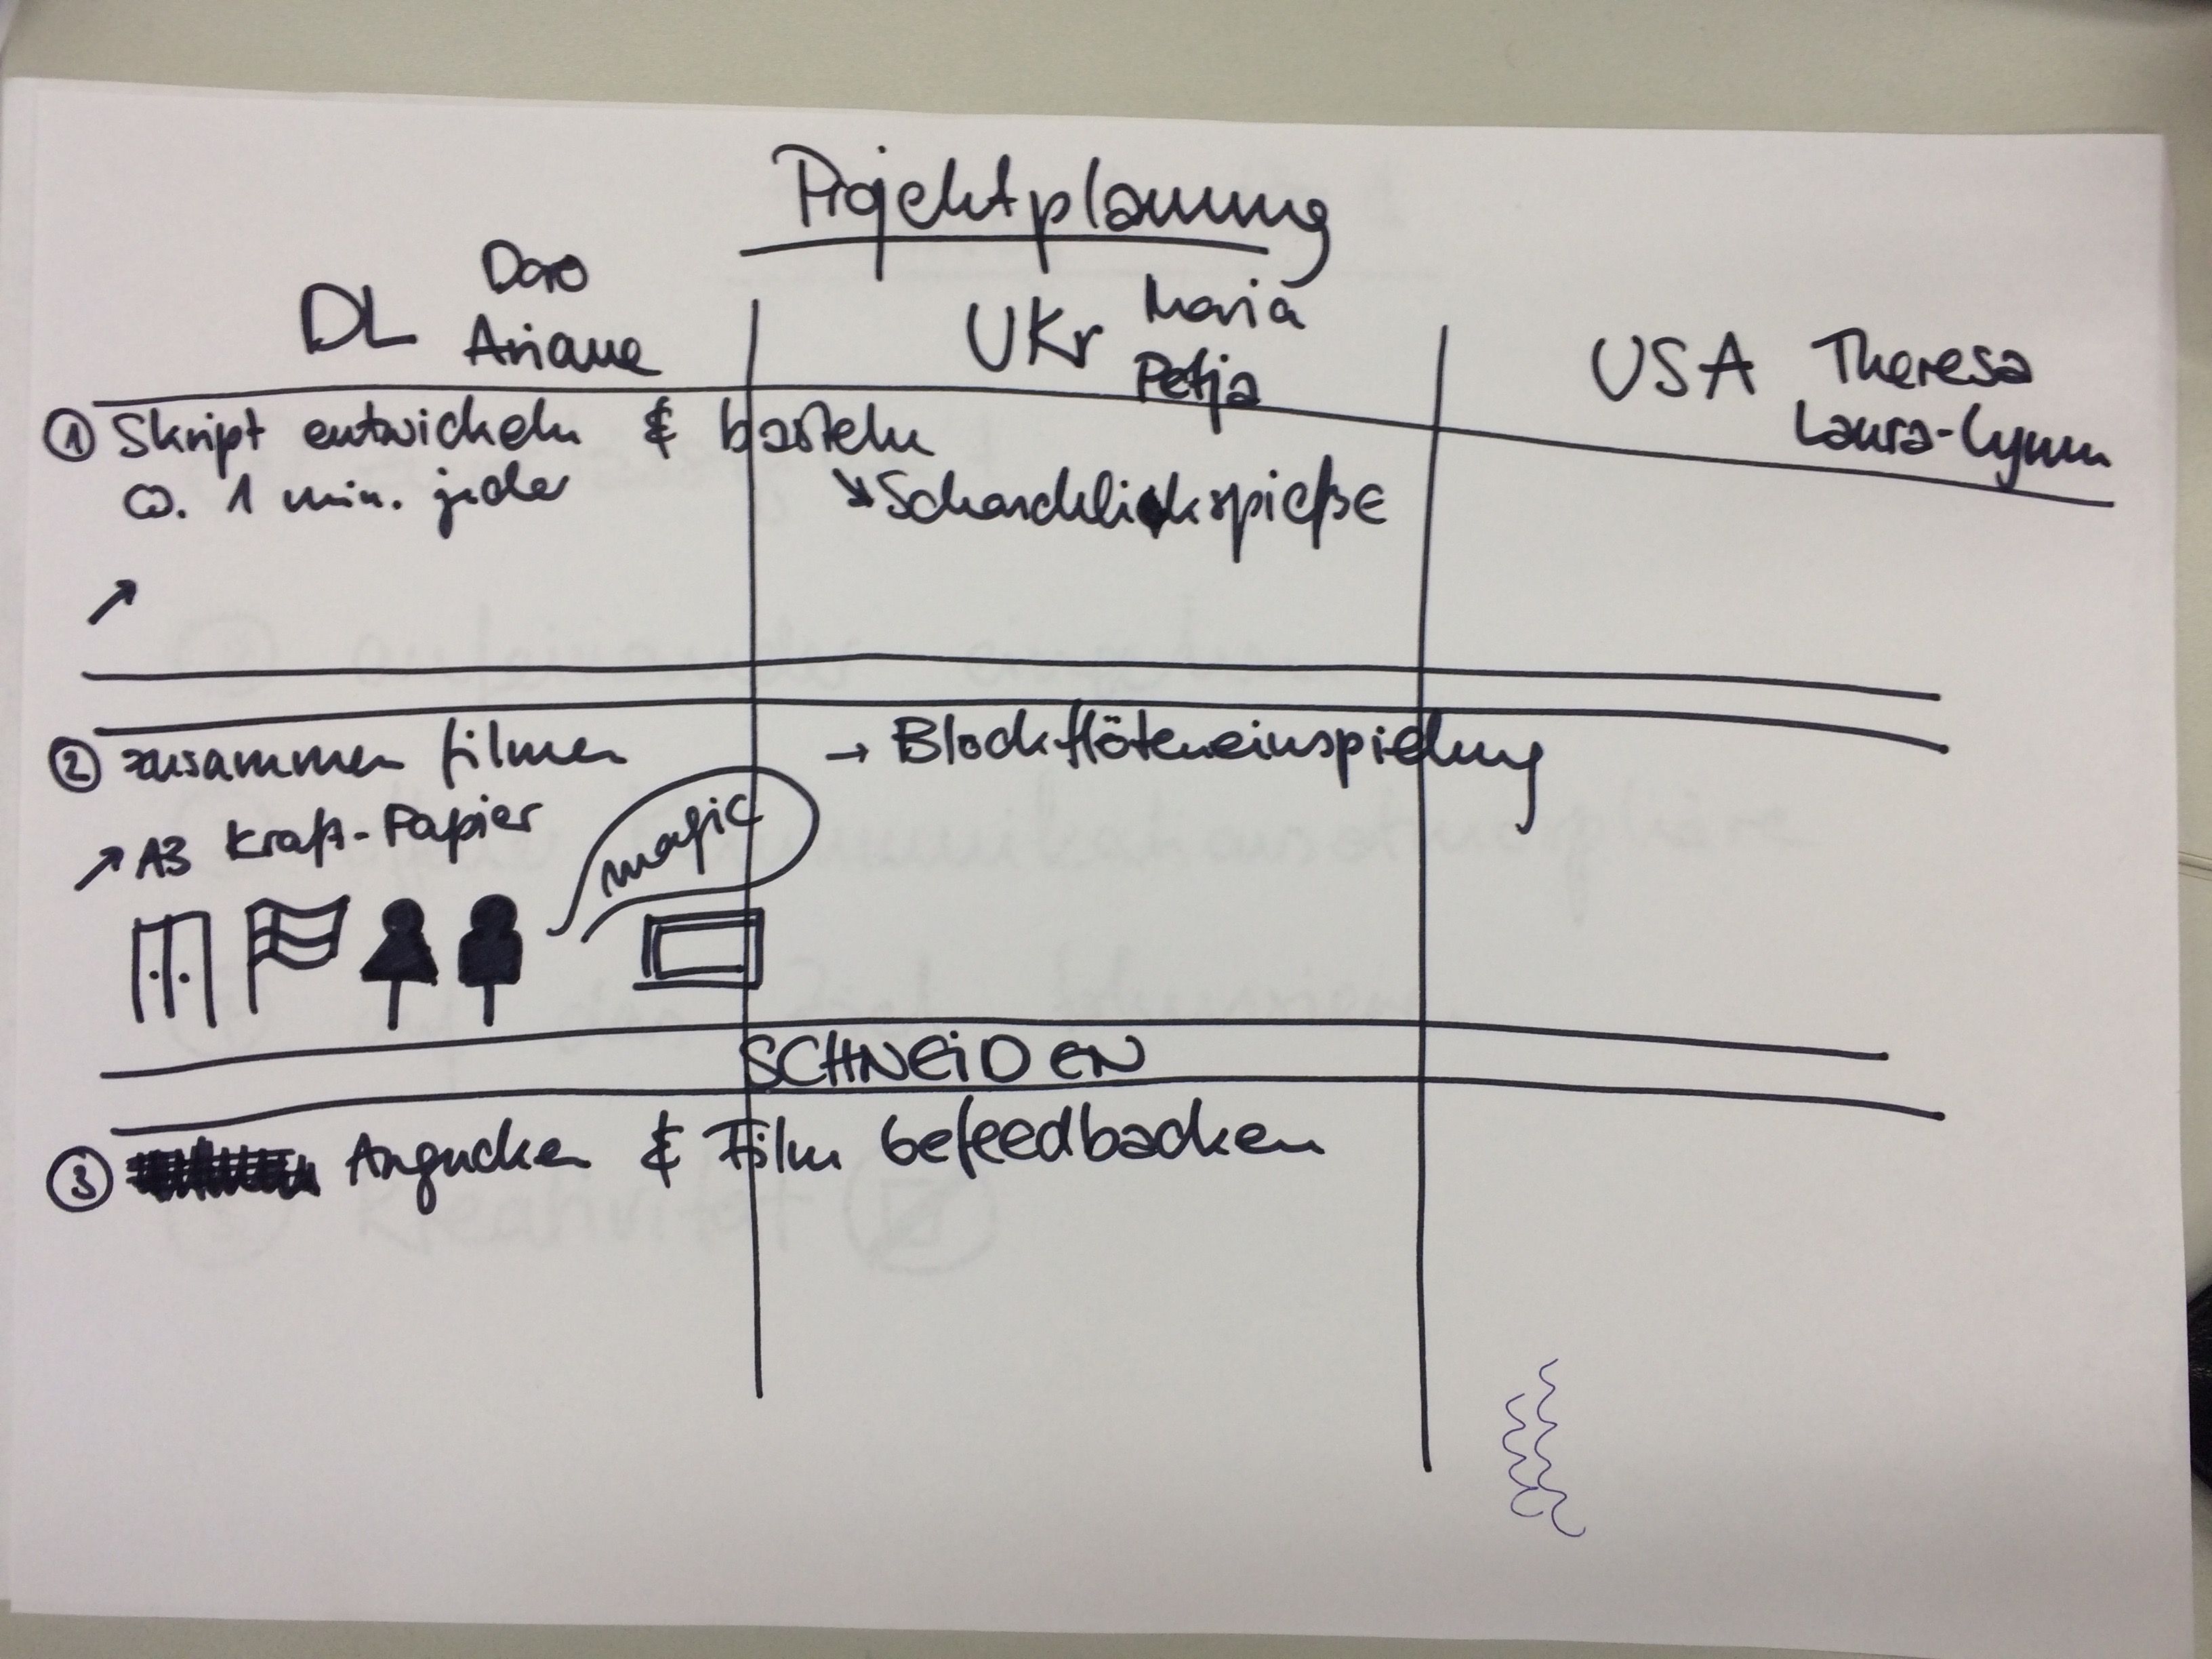 Projektplanung
DL Doro Ariane
UKr Maria Petja
USA Theresa Laura-Lynn
① Skript entwickeln & basteln
ca. 1 min. jeder
↘ Schaschlikspieße
↗
② zusammen filmen
→ Blockflöteneinspielung
↗ A3 Kraft-Papier
magic
SCHNEIDEN
③ Angucken & Film befeedbacken